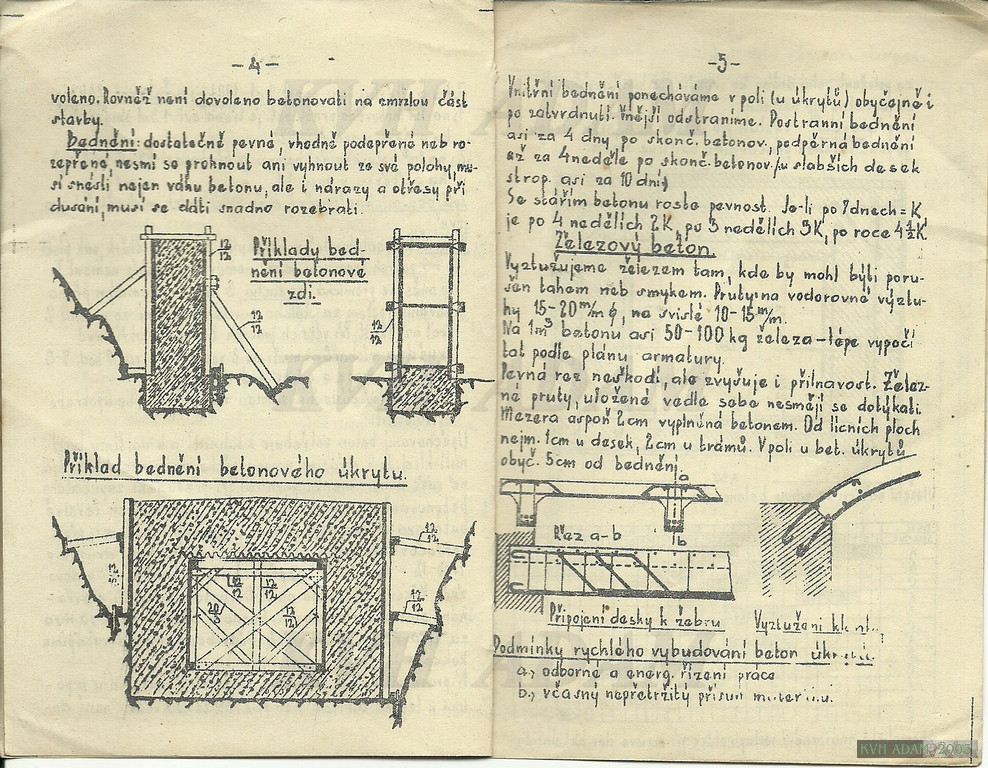 -4-
voleno. Rovněž není dovoleno betonovati na zmrzlou část
stavby.
Bednění: dostatečně pevné, vhodně podepřené neb ro-
zepřené, nesmí se prohnout ani vyhnout ze své polohy, mu-
sí snésti nejen váhu betonu, ale i nárazy a otřesy při
dusání, musí se dáti snadno rozebrati.
Příklady bed-
nění betonové
zdi.
12/12
12/12
12/12
Příklad bednění betonového úkrytu.
12/12
12/12
12/12
12/12
12/12
20/3
12/12
-5-
Vnitřní bednění ponecháváme v poli (u úkrytů) obyčejně i
po zatvrdnutí. Vnější odstraníme. Postranní bednění
asi za 4 dny po skonč. betonov., podpěrná bednění
až za 4 neděle po skonč. betonov. /u slabších desek
strop. asi za 10 dní/
Se stářím betonu roste pevnost. Je-li po 7 dnech = K
je po 4 nedělích 2K, po 3 nedělích 3K, po roce 4½K.
Železový beton.
Vyztužujeme železem tam, kde by mohl býti poru-
šen tahem neb smykem. Pruty na vodorovné výztu-
hy 15-20 m/m ϕ, na svislé 10-15 m/m.
Na 1m³ betonu asi 50-100 kg železa - lépe vypočí
tat podle plánu armatury.
Pevná rez neškodí, ale zvyšuje i přilnavost. Želez-
né pruty, uložené vedle sebe nesmějí se dotýkati.
Mezera aspoň 2cm vyplněná betonem. Od lícních ploch
nejm. 1cm u desek, 2cm u trámů. V poli u bet. úkrytů
obyč. 5cm od bednění.
a
b
Řez a-b
Připojení desky k žebru
Vyztužení
Podmínky rychlého vybudování beton
a, odborné a energ. řízení práce
b, včasný nepřetržitý přísun
KVH ADAM 2005